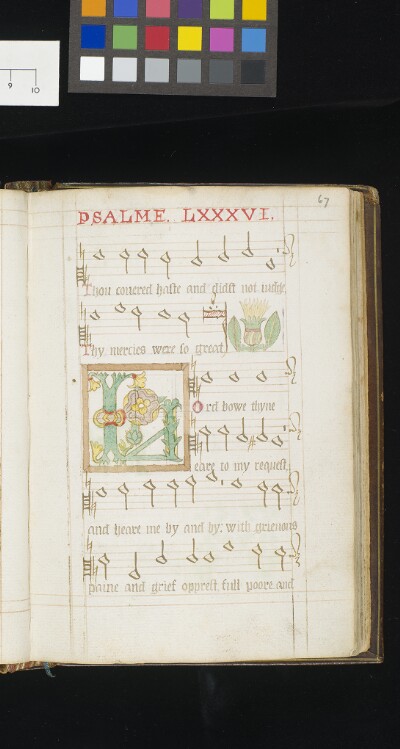 9 10
67
PSALME. LXXXVI.
Thou couered haste and didst not iudge,
Thy mercies were so great,
L
ord bowe thyne
eare to my request,
and heare me by and by: with grieuous
paine and grief opprest, full poore and